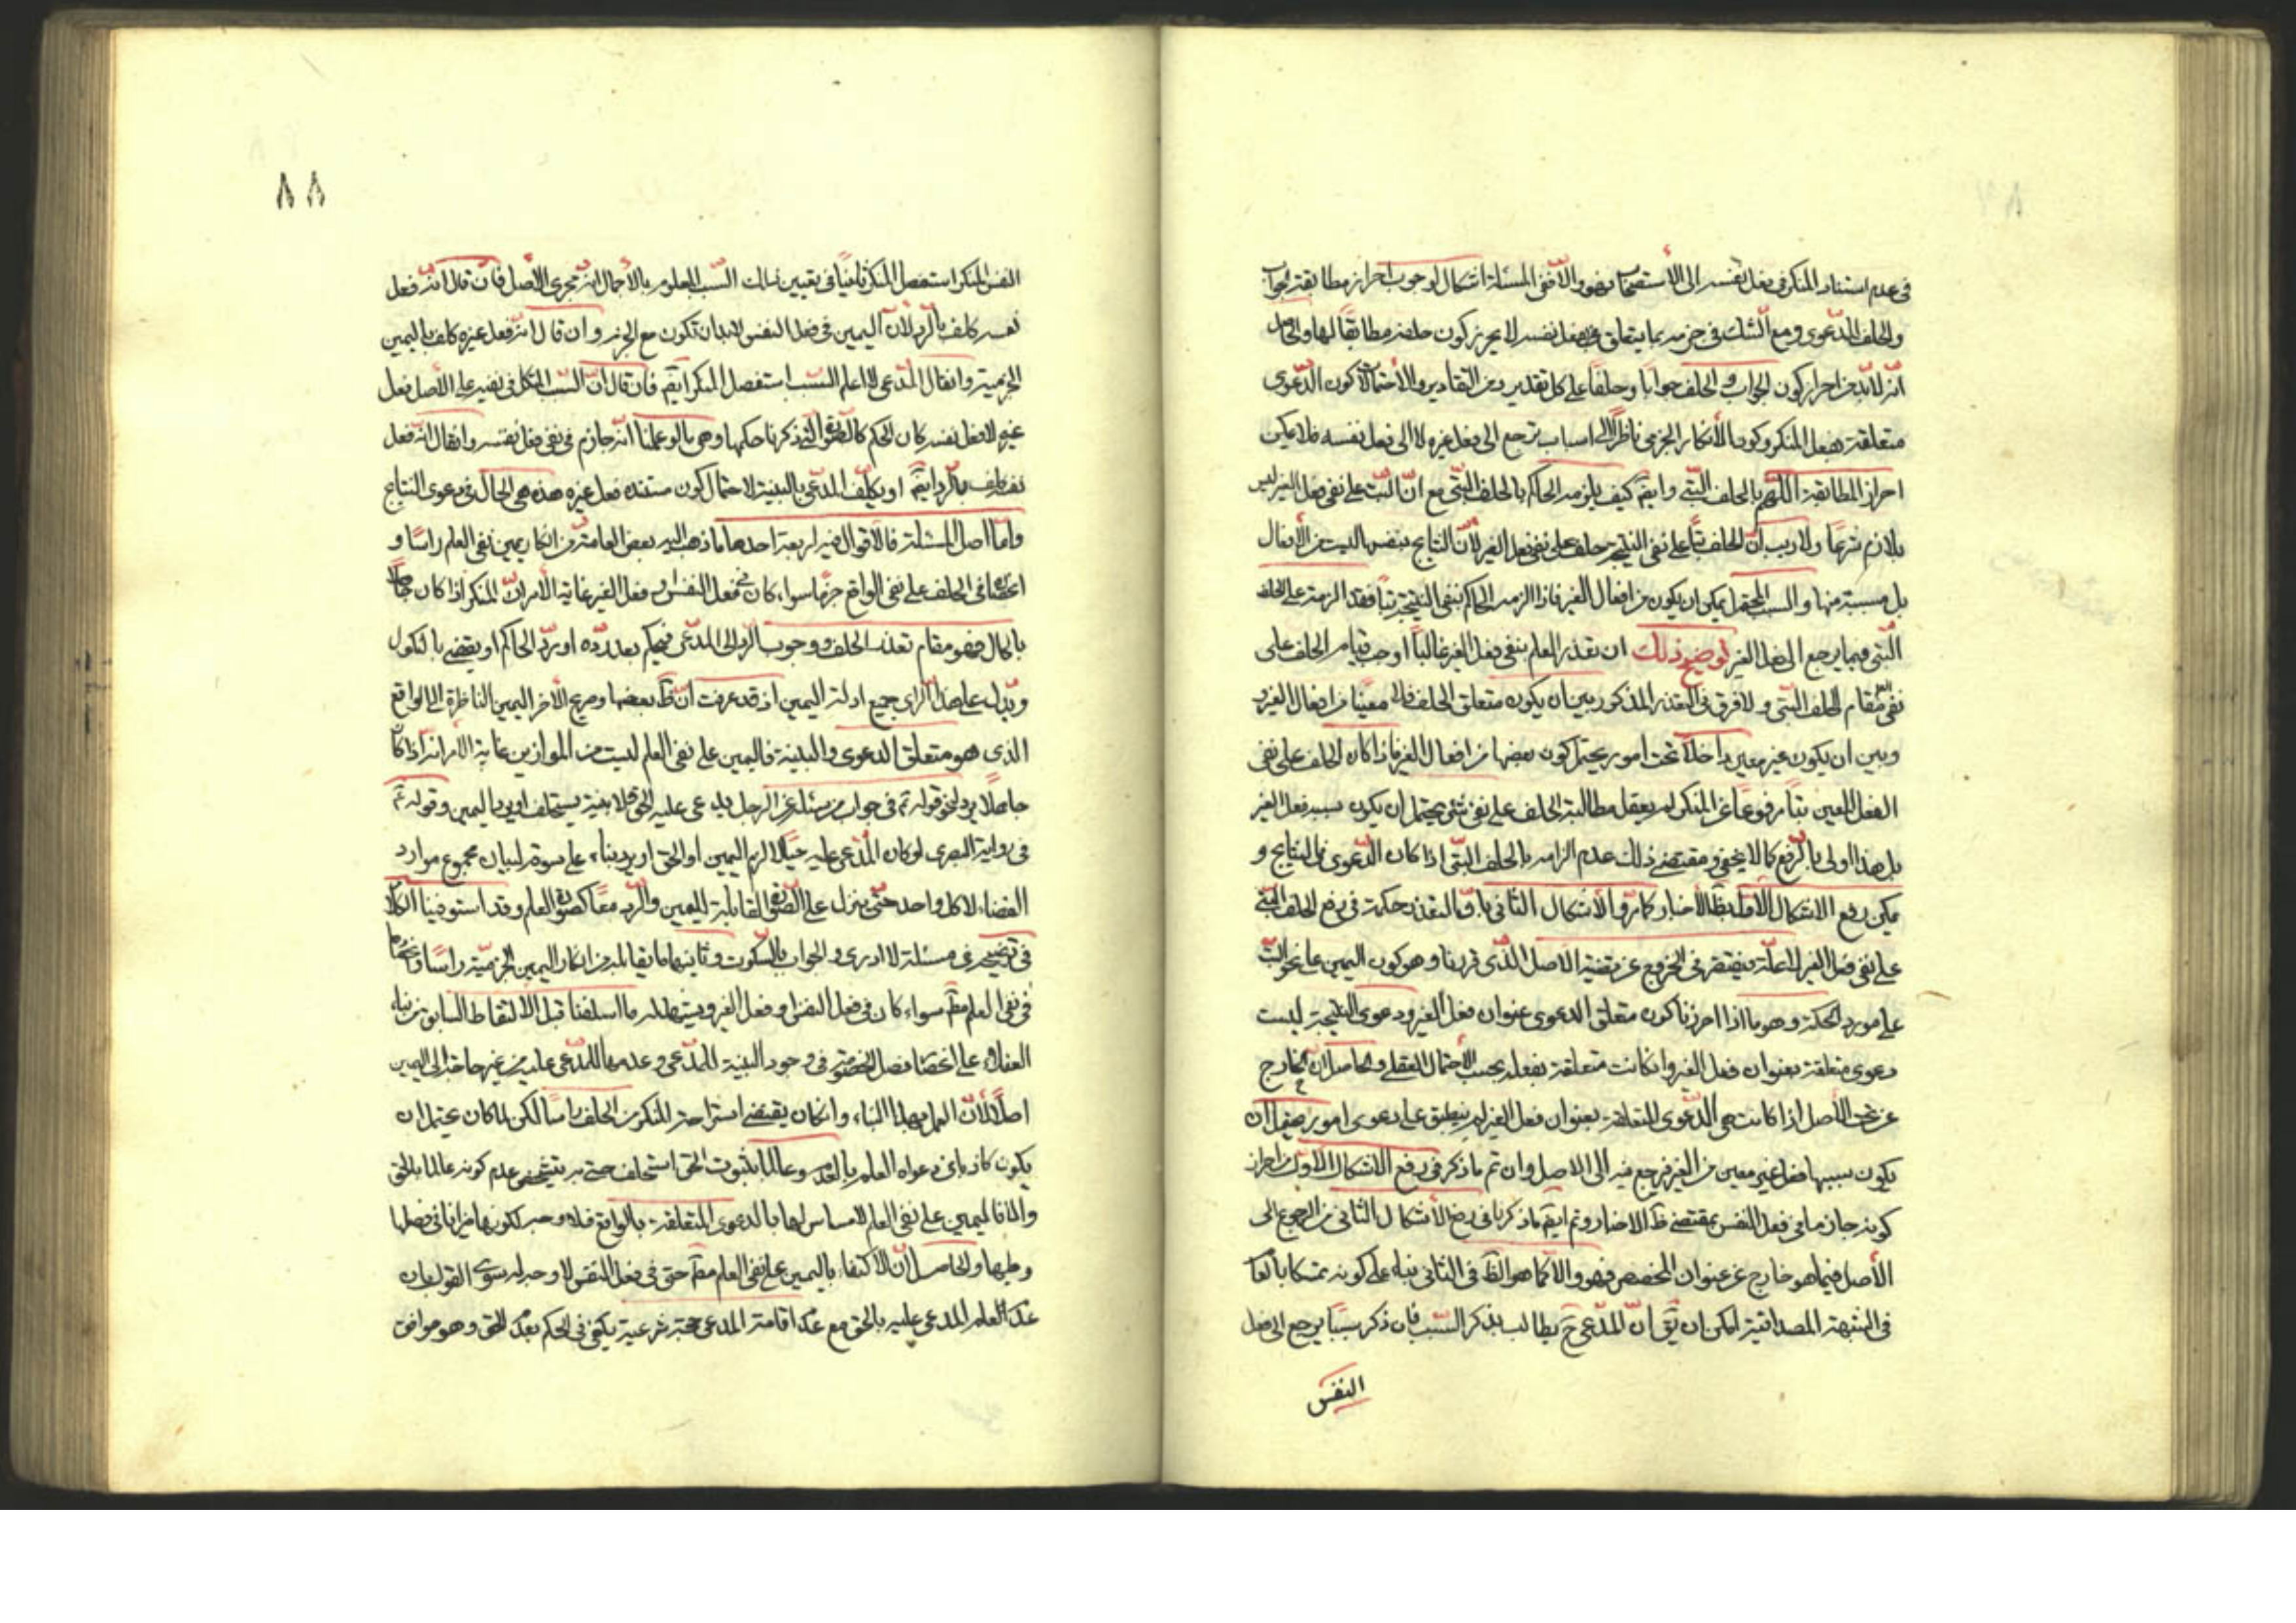 في عدم استناد المنكر في فعل نفسه الى الاستصحاب فهو والا ففي المسئلة اشكال لوجوب احراز مطابقة الجواب
والحلف للدعوى ومع الشك في جزمه بما يتعلق بفعل نفسه لا يحرز كون حلفه مطابقا لها والحاصل
انه لابد من احراز كون الجواب والحلف جوابا وحلفا على كل تقدير من التقادير والاحتمالات كون الدعوى
متعلقة بفعل المنكر وكون الانكار الجزمي ناظرا الى اسباب ترجع الى فعل غيره لا الى فعل نفسه فلا يمكن
احراز المطابقة اللهم بالحلف البتي وايضم كيف يلزمه الحاكم بالحلف البتي مع ان البت على نفي فعل الغير ليس
بلازم شرعا ولا ريب ان الحلف بتا على نفي النتيجة حلف على نفي فعل الغير لان النتايج بنفسها ليست من الافعال
بل مسببة منها والسبب المحتمل يمكن ان يكون من افعال الغير فاذا الزمه الحاكم بنفي النتيجة بتا فقد الزمه على الحلف
البتي فيما يرجع الى فعل الغير توضيح ذلك ان تعذر العلم بنفي فعل الغير غالبا اوجب قيام الحلف على
نفي العلم مقام الحلف البتي ولا فرق في التعذر المذكور بين ان يكون متعلق الحلف فعلا معينا من افعال الغير
وبين ان يكون غير معين داخلا تحت امور يحتمل كون بعضها من افعال الغير فاذا كان الحلف على نفي
الفعل المعين بتا مرفوعا عن المنكر لم يعقل مطالبة الحلف على نفي شئ يحتمل ان يكون سببه فعل الغير
بل هذا اولى بالرفع كما لا يخفى ومقتضى ذلك عدم الزامه بالحلف البتي اذا كان الدعوى في النتايج و
يمكن دفع الاشكال الاول بظ الاخبار كما مر والاشكال الثاني بان التعذر حكمة في رفع الحلف البتي
على نفي فعل الغير لا علة فيقتصر في الخروج عن قضية الاصل الذي قررنا وهو كون اليمين على نحو البت
على مورد الحكمة وهو ما اذا احرزنا كون متعلق الدعوى عنوان فعل الغير ودعوى النتيجة ليست
دعوى متعلقة بعنوان فعل الغير وان كانت متعلقة بفعله بحسب الاحتمال العقلي والحاصل ان الخارج
عن تحت الاصل اذا كانت هي الدعوى المتعلقة بعنوان فعل الغير لم ينطبق على دعوى امور يحتمل ان
يكون سببها فعل غير معين من الغير فيرجع فيه الى الاصل وان تم ما ذكر في دفع الاشكال الاول من احراز
كونه جازما في فعل النفس بمقتضى ظ الاخبار وتم ايضم ما ذكرنا في دفع الاشكال الثاني من الرجوع الى
الاصل فيما هو خارج عن عنوان المخصص فهو والا كما هو الظ في الثاني بناء على كونه تمسكا بالعام
في الشبهة المصداقية امكن ان يق ان المدعي ح يطالب بذكر السبب فان ذكر سببا يرجع الى فعل
النفس
٨٨
النفس المنكر استفصل المنكر ثانيا في تعيين ذلك السبب المعلوم بالاجمال انه مجرى الاصل فان قال انه فعل
نفسه كلف بالرد لان اليمين في فعل النفس لابد ان تكون مع الجزم وان قال انه فعل غيره كلف باليمين
الجزمية وان قال المدعي لا اعلم السبب استفصل المنكر ايضم فان قال ان السبب المتكل في نفيه على الاصل فعل
غيره لا فعل نفسه كان الحكم كالصورة التي ذكرنا حكمها وهي ما لو علمنا انه جازم في نفي فعل نفسه وان قال انه فعل
نفسه كلف بالرد ايضم او يكلف المدعي بالبينة لاحتمال كون مستنده فعل غيره هذه هي الحال في دعوى النتايج
واما اصل المسئلة فالاقوال فيه اربعة احدها ما ذهب اليه بعض العامة من انكار يمين نفي العلم راسا و
انحصار الحلف على نفي الواقع جزما سواء كان في فعل النفس او فعل الغير غاية الامر ان المنكر اذا كان جاهلا
بالحال فهو مقام تعذر الحلف ووجوب الرد الى المدعي فيحكم بعد رده او رد الحاكم او يقضي بالنكول
ويدل على هذا الراي جميع ادلة اليمين اذ قد عرفت ان ظ بعضها وصريح الاخر اليمين الناظرة الى الواقع
الذي هو متعلق الدعوى والبينة فاليمين على نفي العلم ليست من الموازين غاية الامر انه اذا كان
جاهلا يرد لنحو قوله ع في جواب من سئله عن الرجل يدعى عليه الحق فلا بينة يستحلف او يرد اليمين وقوله ع
في رواية البصري لو كان المدعى عليه حيا لالزم اليمين او الحق او يرد بناء على سوقه لبيان مجموع موارد
القضاء لا كل واحد حتى ينزل على الصورة القابلة لليمين والرد معا كصورة العلم وقد استوفينا الكلام
في توضيحه في مسئلة لا ادري والجواب بالسكوت وثانيها ما يقابله من انكار اليمين الجزمية راسا وانحصارها
في نفي العلم مط سواء كان في فعل النفس او فعل الغير ويشهد له ما اسلفنا قبل الالتقاط السابق من بناء
العقلاء على انحصار فصل الخصومة في وجود البينة للمدعي وعدمها للمدعى عليه من غير حاجة الى اليمين
اصلا لان العمل بهذا البناء وان كان يقتضي استراحة المنكر من الحلف راسا لكن لما كان يحتمل ان
يكون كاذبا في دعواه العلم بالعدم وعالما بثبوت الحق استحلف حتى يتشخص عدم كونه عالما بالحق
والا فاليمين على نفي العلم لا مساس لها بالدعوى المتعلقة بالواقع فلا وجه لكونها ميزانا في فصلها
وطيها والحاصل ان الاكتفاء باليمين على نفي العلم مط حتى في فعل النفس لا وجه له سوى القول بان
عدم العلم المدعى عليه بالحق مع عدم اقامة المدعي حجة شرعية يكفي في الحكم بعدم الحق وهو موافق